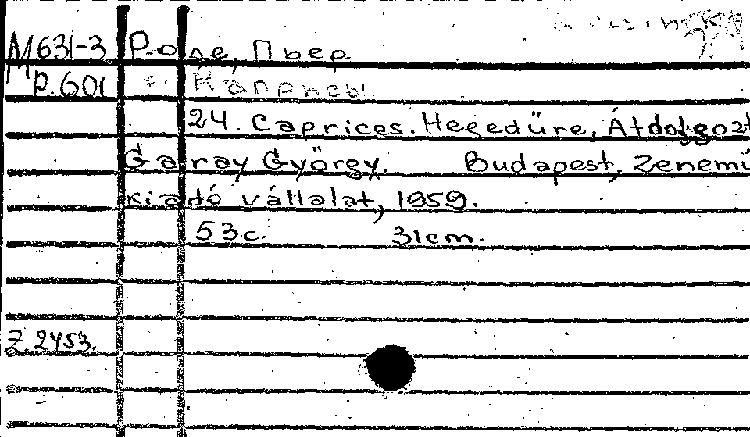 М631-3 Роде, Пьер
Р.601 Каприсы
24. Caprices. Hegedűre, Átdolgozt
Garay György. Budapest, Zenemű
kiadó vállalat, 1959.
53с. 31cm.
Z.2453.